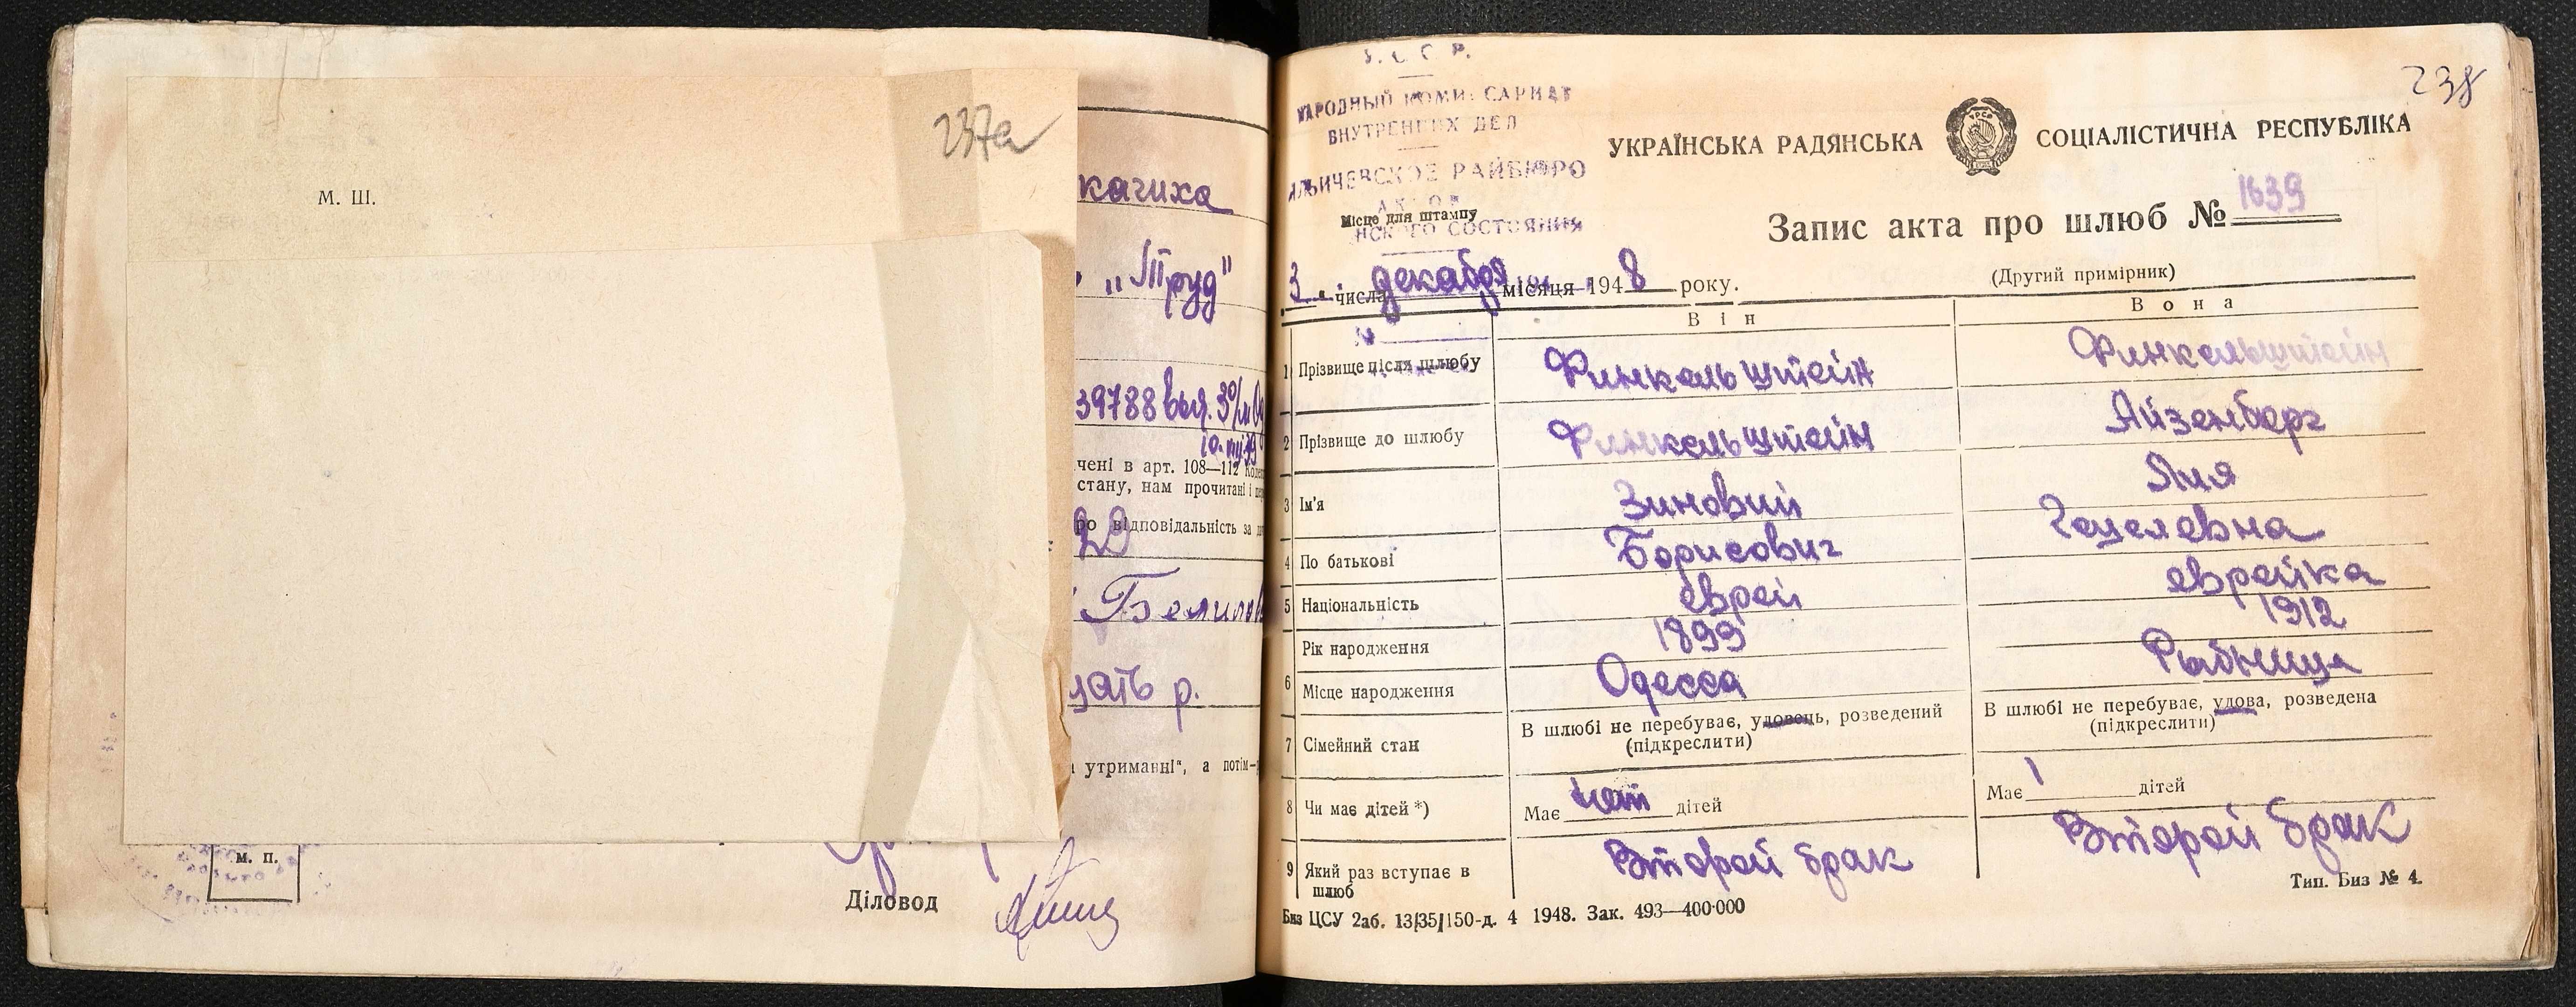 237а
М. Ш.
качиха
„Труд"
39788 выд. 3 о/м
чені в арт. 108—112
стану, нам прочитані і
ро відповідальність за
цать р.
утриманні“, а потім—
м. п.
Діловод
238
У. С. С. Р.
НАРОДНЫЙ КОМИССАРИАТ
ВНУТРЕННИХ ДЕЛ
ИЛЬИЧЕВСКОЕ РАЙБЮРО
АКТОВ
Місце для штампу
НСКОГО СОСТОЯНИЯ
УКРАЇНСЬКА РАДЯНСЬКА СОЦІАЛІСТИЧНА РЕСПУБЛІКА
УРСР
Запис акта про шлюб № 1639
(Другий примірник)
3 „ числа декабря місяця 1948 року.
Він Вона
1 Прізвище після шлюбу Финкельштейн Финкельштейн
2 Прізвище до шлюбу Финкельштейн Айзенберг
3 Ім'я Зиновий Лия
4 По батькові Борисович Гецелевна
5 Національність еврей еврейка
Рік народження 1899 1912
6 Місце народження Одесса Рыбница
7 Сімейний стан В шлюбі не перебуває, удовець, розведений (підкреслити) В шлюбі не перебуває, удова, розведена (підкреслити)
8 Чи має дітей *) Має нет дітей Має 1 дітей
9 Який раз вступає в шлюб Второй брак Второй брак
Тип. Биз № 4.
Биз ЦСУ 2аб. 13/35/150-д. 4 1948. Зак. 493—400·000